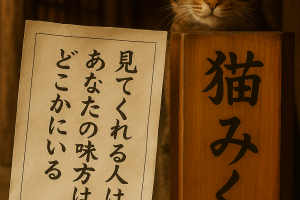 見てくれる人は
あなたの味方は
どこかにいる
猫みく